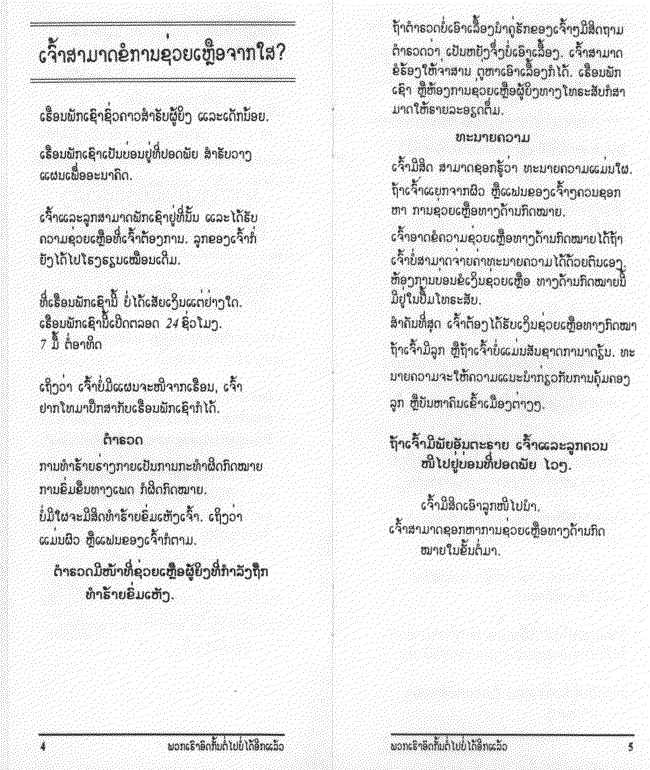 ເຈົ້າສາມາດຂໍການຊ່ວຍເຫຼືອຈາກໃສ?
ເຮືອນພັກເຊົາຊົ່ວຄາວສຳຣັບຜູ້ຍິງ ແລະເດັກນ້ອຍ.
ເຮືອນພັກເຊົາເປັນບ່ອນຢູ່ທີ່ປອດພັຍ ສຳຣັບວາງ
ແຜນເພື່ອອະນາຄົດ.
ເຈົ້າແລະລູກສາມາດພັກເຊົາຢູ່ທີ່ນັ້ນ ແລະໄດ້ຮັບ
ຄວາມຊ່ວຍເຫຼືອທີ່ເຈົ້າຕ້ອງການ. ລູກຂອງເຈົ້າກໍ່
ຍັງໄດ້ໄປໂຮງຮຽນເໝືອນເດີມ.
ທີ່ເຮືອນພັກເຊົານີ້ ບໍ່ໄດ້ເສັຍເງິນແຕ່ຢ່າງໃດ.
ເຮືອນພັກເຊົານີ້ເປີດຕລອດ 24 ຊົ່ວໂມງ.
7 ມື້ ຕໍ່ອາທິດ
ເຖິງວ່າ ເຈົ້າບໍ່ມີແຜນຈະໜີຈາກເຮືອນ, ເຈົ້າ
ຢາກໂທມາປຶກສາກັບເຮືອນພັກເຊົາກໍໄດ້.
ຕຳຣວດ
ການທຳຮ້າຍຮ່າງກາຍເປັນການກະທຳຜິດກົດໝາຍ
ການຂົ່ມຂືນທາງເພດ ກໍຜິດກົດໝາຍ.
ບໍ່ມີໃຜຈະມີສິດທຳຮ້າຍຂົ່ມເຫັງເຈົ້າ. ເຖິງວ່າ
ແມ່ນຜົວ ຫຼືແຟນຂອງເຈົ້າກໍຕາມ.
ຕຳຣວດມີໜ້າທີ່ຊ່ວຍເຫຼືອຜູ້ຍິງທີ່ກຳລັງຖືກ
ທຳຮ້າຍຂົ່ມເຫັງ.
4 ພວກເຮົາອົດກັ້ນຕໍ່ໄປບໍ່ໄດ້ອີກແລ້ວ
ຖ້າຕຳຣວດບໍ່ເອົາເລື້ອງນຳຄູ່ຮັກຂອງເຈົ້າໆມີສິດຖາມ
ຕຳຣວດວ່າ ເປັນຫຍັງຈຶ່ງບໍ່ເອົາເລື້ອງ. ເຈົ້າສາມາດ
ຂໍຮ້ອງໃຫ້ຈ່າສານ ຖືຫາເອົາເລື້ອງກໍໄດ້. ເຮືອນພັກ
ເຊົາ ຫຼືຫ້ອງການຊ່ວຍເຫຼືອຜູ້ຍິງທາງໂທຣະສັບກໍສາ
ມາດໃຫ້ຣາຍລະອຽດຕື່ມ.
ທະນາຍຄວາມ
ເຈົ້າມີສິດ ສາມາດຊອກຮູ້ວ່າ ທະນາຍຄວາມແມ່ນໃຜ.
ຖ້າເຈົ້າແຍກຈາກຜົວ ຫຼືແຟນຂອງເຈົ້າໆຄວນຊອກ
ຫາ ການຊ່ວຍເຫຼືອທາງດ້ານກົດໝາຍ.
ເຈົ້າອາດຂໍຄວາມຊ່ວຍເຫຼືອທາງດ້ານກົດໝາຍໄດ້ຖ້າ
ເຈົ້າບໍ່ສາມາດຈ່າຍຄ່າທະນາຍຄວາມໄດ້ດ້ວຍຕົນເອງ.
ຫ້ອງການບ່ອນຂໍເງິນຊ່ວຍເຫຼືອ ທາງດ້ານກົດໝາຍນີ້
ມີຢູ່ໃນປຶ້ມໂທຣະສັບ.
ສຳຄັນທີ່ສຸດ ເຈົ້າຕ້ອງໄດ້ຮັບເງິນຊ່ວຍເຫຼືອທາງກົດໝາ
ຖ້າເຈົ້າມີລູກ ຫຼືຖ້າເຈົ້າບໍ່ແມ່ນສັນຊາດການາດຽັນ. ທະ
ນາຍຄວາມຈະໃຫ້ຄວາມແນະນຳກ່ຽວກັບການຄຸ້ມຄອງ
ລູກ ຫຼືບັນຫາຄົນເຂົ້າເມືອງຕ່າງໆ.
ຖ້າເຈົ້າມີພັຍອັນຕະຣາຍ ເຈົ້າແລະລູກຄວນ
ໜີໄປຢູ່ບ່ອນທີ່ປອດພັຍ ໄວໆ.
ເຈົ້າມີສິດເອົາລູກໜີໄປນຳ.
ເຈົ້າສາມາດຊອກຫາການຊ່ວຍເຫຼືອທາງດ້ານກົດ
ໝາຍໃນຂັ້ນຕໍ່ມາ.
ພວກເຮົາອົດກັ້ນຕໍ່ໄປບໍ່ໄດ້ອີກແລ້ວ 5